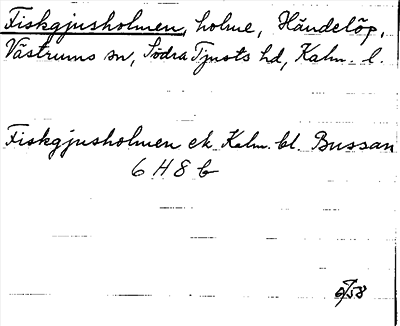 Fiskgjusholmen, holme, Händelöp,
Västrums sn, Södra Tjusts hd, Kalm. l.
Fiskgjusholmen ek Kalm. bl. Bussan
6 H 8 b
58